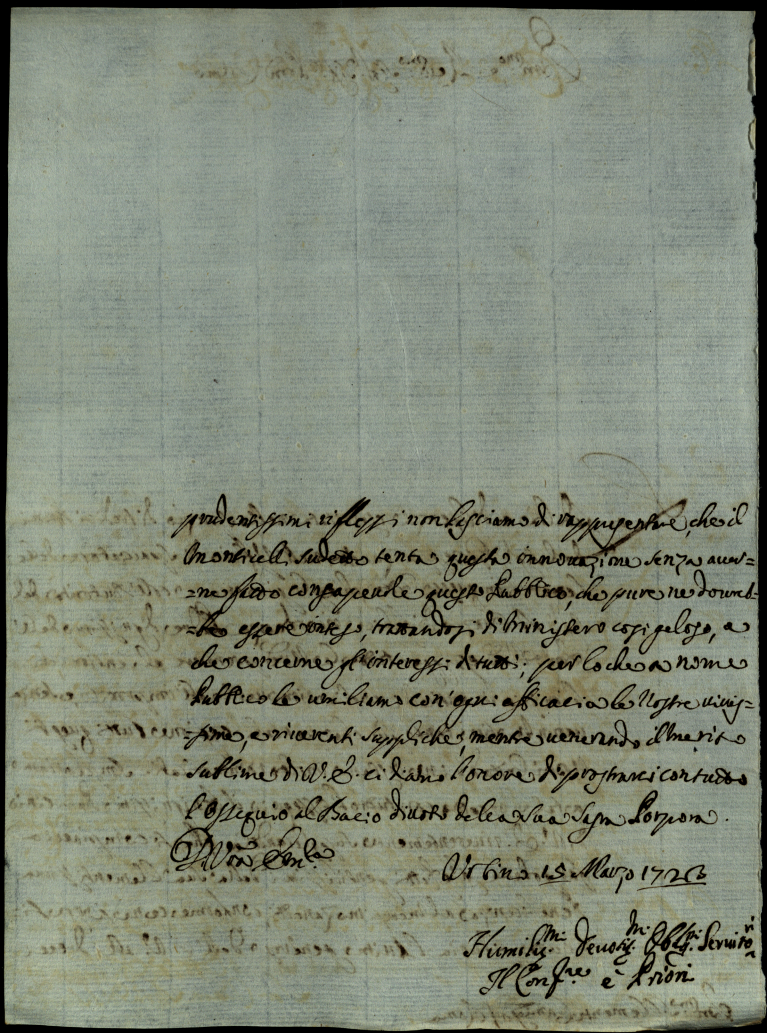 prudentissimi riflessi non lasciamo di rappresentare, che il
Monticelli sudetto tenta questa innovazione senza auer=
=ne fatto consapeuole questo Pubblico, che pure ne doureb=
=be essere inteso, trattandosi di Ministero così geloso, e
che concerne gl'interessi di tutti; per lo che a nome
Pubblico le umiliamo con ogni efficacia le Nostre viuis=
=sime, e riuerenti suppliche; mentre uenerando il merito
sublime di V. E. ci diamo l'onore di prostrarci con tutto
l'Ossequio al Bacio diuoto della Sua Sagra Porpora.
D. Vra Em.za
Urbino 15 Marzo
Humiliss.mi Deuotis.mi Obl.mi Seruitori
Il Conf.re e Priori